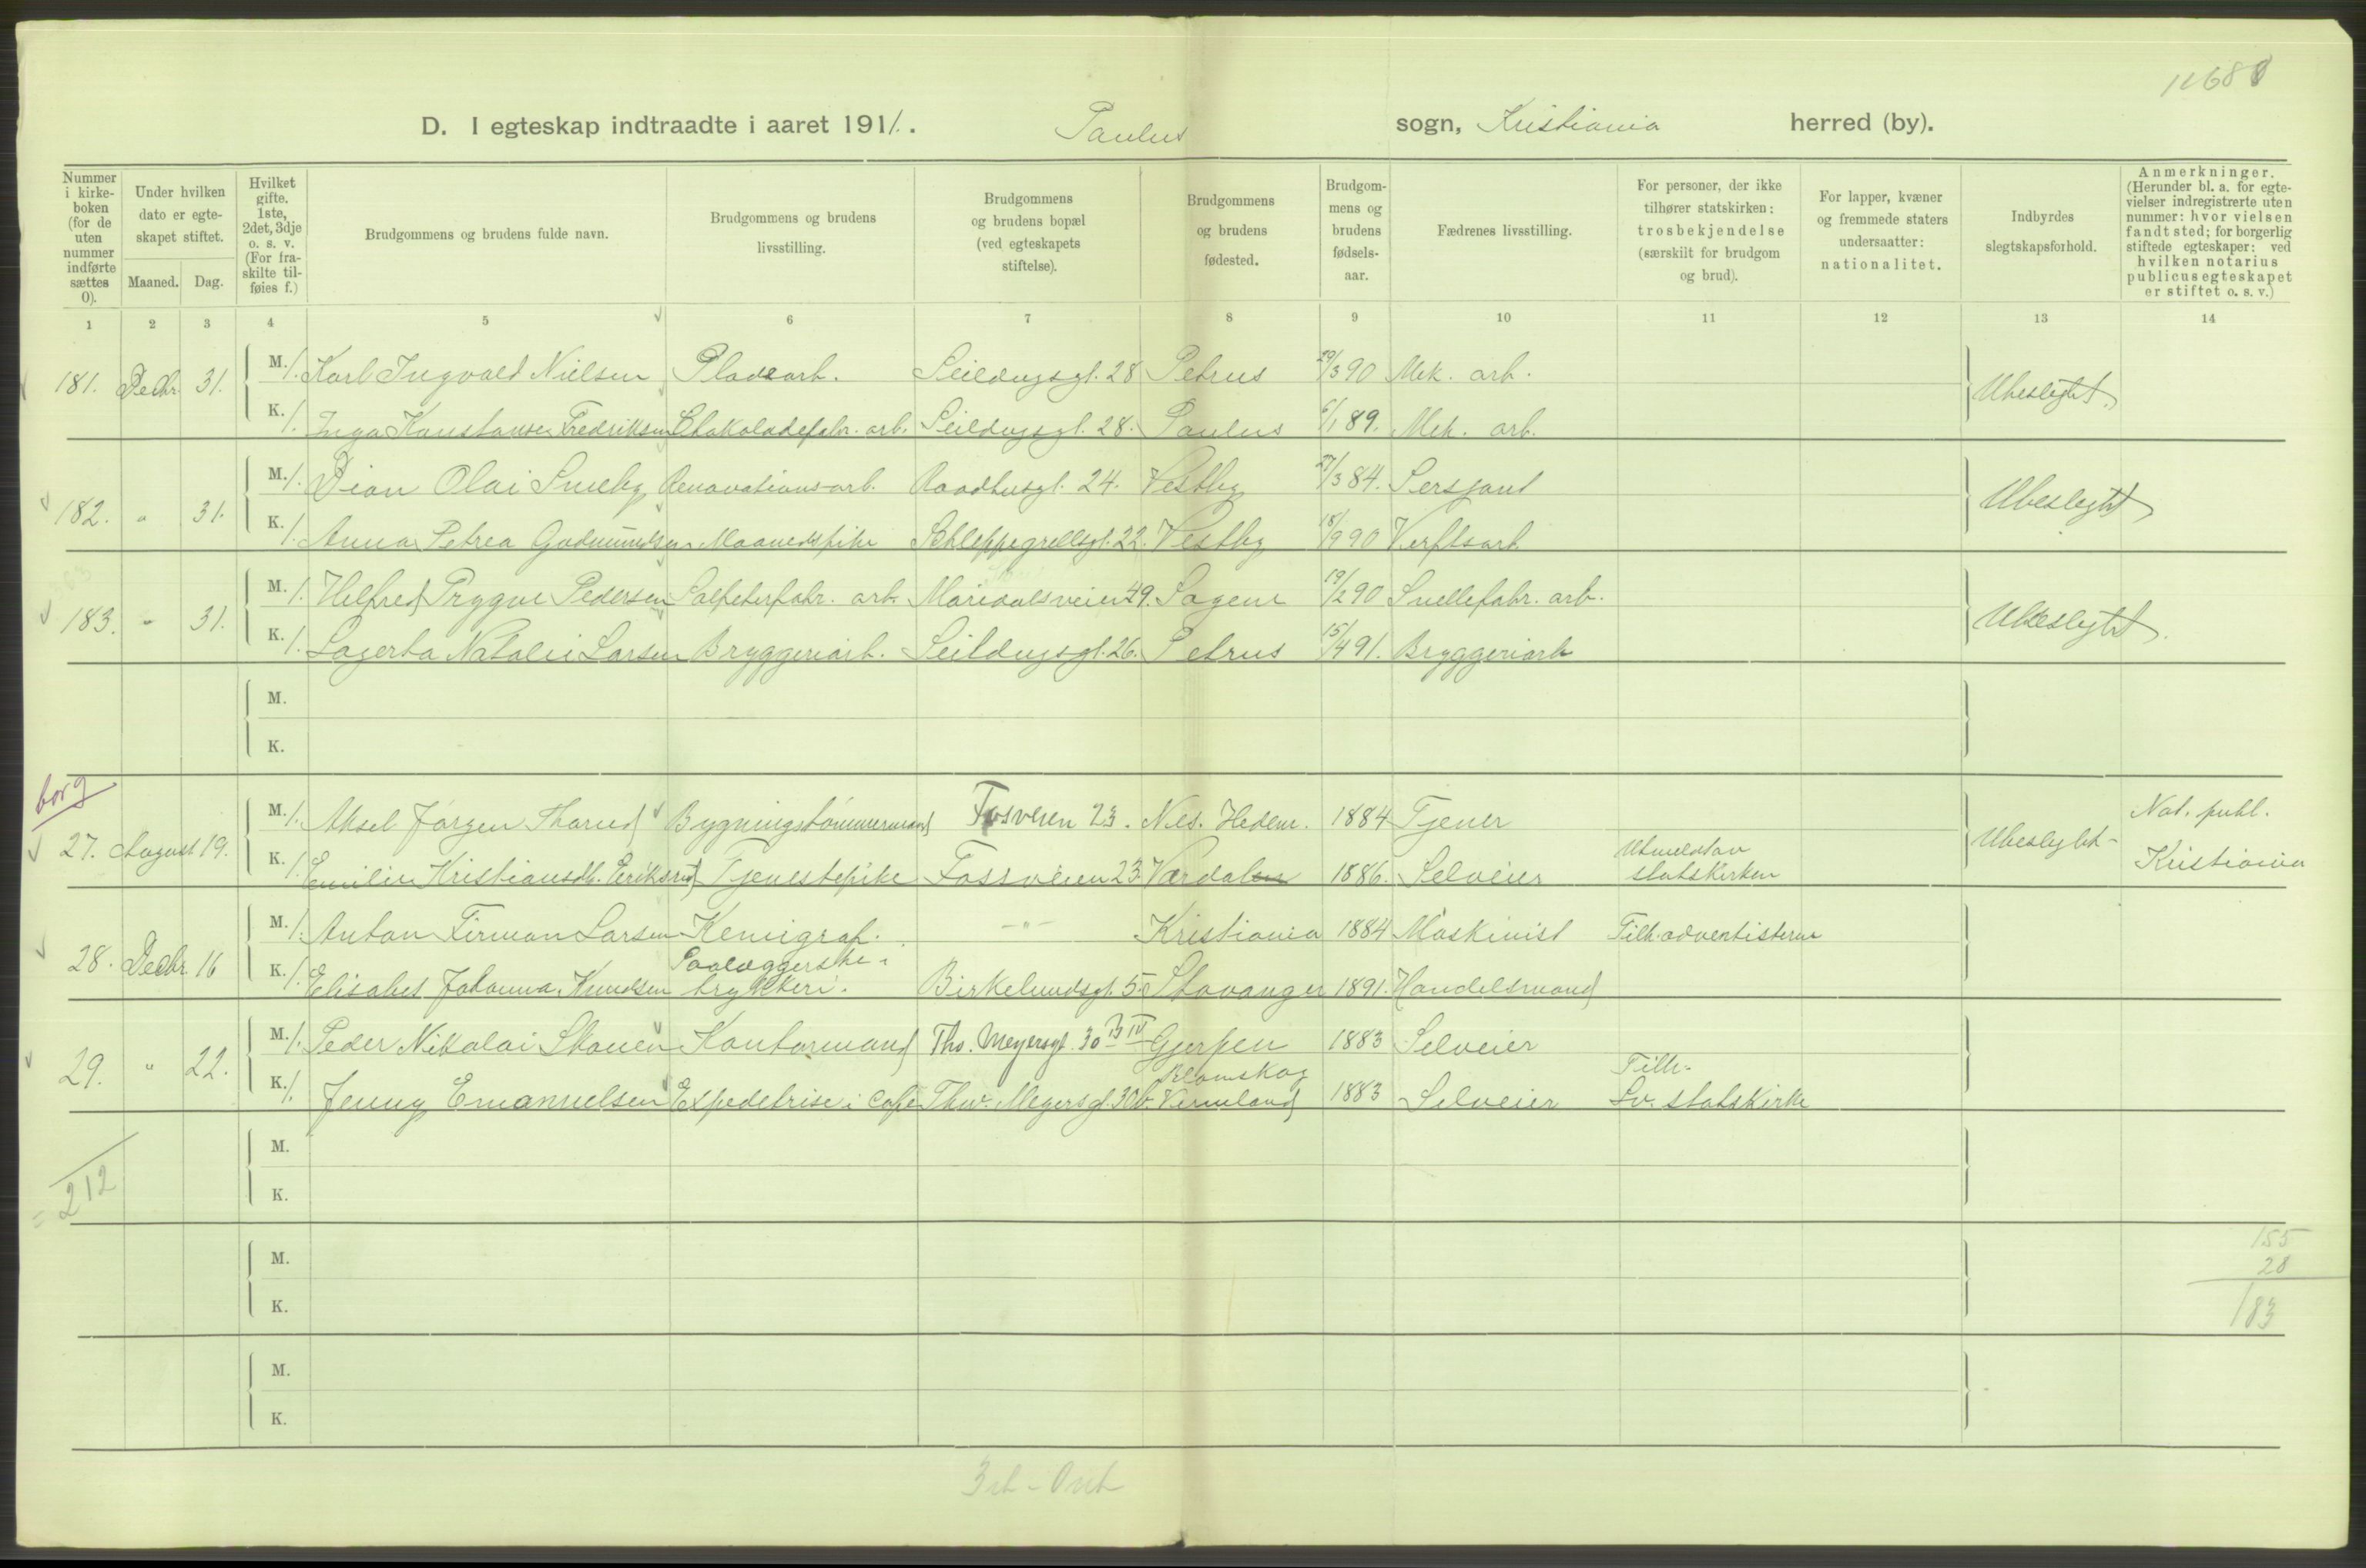 D. I egteskap indtraadte i aaret 1911. Paulus sogn, Kristiania herred (by).
Nummer i kirkeboken (for de uten nummer indførte sættes 0).
Under hvilken dato er egteskapet stiftet.
Maaned. Dag.
Hvilket gifte. 1ste, 2det, 3dje o. s. v. (For fraskilte tilføies f.)
Brudgommens og brudens fulde navn.
Brudgommens og brudens livsstilling.
Brudgommens og brudens bopæl (ved egteskapets stiftelse).
Brudgommens og brudens fødested.
Brudgommens og brudens fødselsaar.
Fædrenes livsstilling.
For personer, der ikke tilhører statskirken: trosbekjendelse (særskilt for brudgom og brud).
For lapper, kvæner og fremmede staters undersaatter: nationalitet.
Indbyrdes slegtskapsforhold.
Anmerkninger. (Herunder bl. a. for egtevielser indregistrerte uten nummer: hvor vielsen fandt sted; for borgerlig stiftede egteskaper; ved hvilken notarius publicus egteskapet er stiftet o. s. v.)
1 2 3 4 5 6 7 8 9 10 11 12 13 14
181. Decbr. 31. M. 1. Karl Ingvald Nielsen Pladsarb. Seildugsgt. 28 Petrus 29/3 90 Mek. arb. Ubeslegtet.
K. 1. Inga Konstanse Fredriksen Chokoladefabr. arb. Seildugsgt. 28. Paulus 6/1 89. Mek. arb.
182. " 31. M. 1. Olai Smeby Renovationsarb. Raadhusgt. 24. Vestby 27/3 84. Sersjant Ubeslegtet
K. 1. Anna Petrea Gudmundsen Maanedspike Schleppegrellsgt. 22. Vestby 18/9 90 Verftsarb.
183. " 31. M. 1. Helfred Trygve Pedersen Salpeterfabr. arb. Maridalsveien 49. Sagene 19/2 90 Snellefabr. arb. Ubeslegtet.
K. 1. Lagerta Natalie Larsen Bryggeriarb. Seildugsgt. 26. Petrus 15/4 91. Bryggeriarb
M.
K.
borg
27. August 19. M. 1. Aksel Jørgen Thorud Bygningstømmermand Fosveien 23. Nes. Hedem. 1884 Tjener Ubeslegtet Not. publ.
K. 1. Emilie Kristiansdt. Eriksrud Tjenestepike Fossveien 23 Værdalen 1886. Selveier Utmeldt av statskirken Kristiania
28. Decbr. 16 M. 1. Anton Firman Larsen Kemigraf. -"- Kristiania 1884 Maskinist Tilh. adventisterne
K. 1. Elisabet Johanna Knudsen Paalæggerske i trykkeri. Birkelundsgt. 5. Stavanger 1891. Handelsmand
29. " 22. M. 1. Peder Nikolai Skauen Kontormand Tho. Meyersgt. 30 B IV Gjerpen 1883 Selveier
K. 1. Jenny Emanuelsen Expedetrise i Cafe Thv. Meyersgt. 30b. Blomskog Vermland 1883 Selveier Tilh. Sv. statskirke
M.
= 212
K.
M. 155
28
K. 183
M.
K.